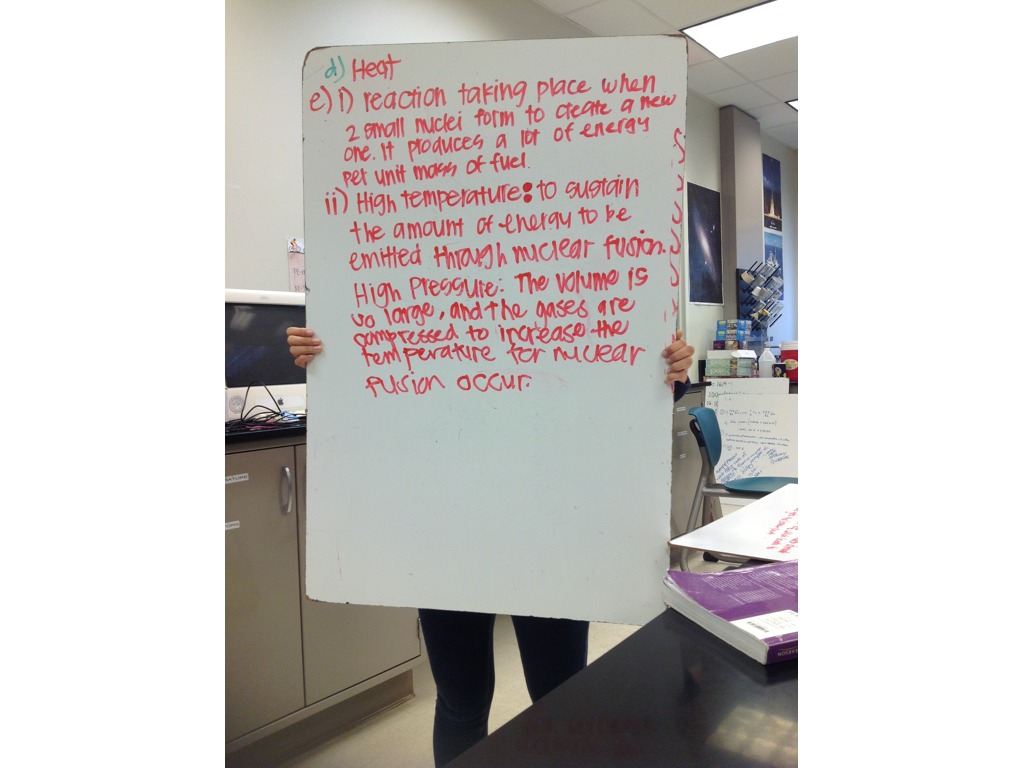 d) Heat
e) i) reaction taking place when
2 small nuclei form to create a new
one. It produces a lot of energy
per unit mass of fuel.
ii) High temperature: to sustain
the amount of energy to be
emitted through nuclear fusion.
High Pressure: The volume is
so large, and the gases are
compressed to increase the
temperature for nuclear
fusion occur.